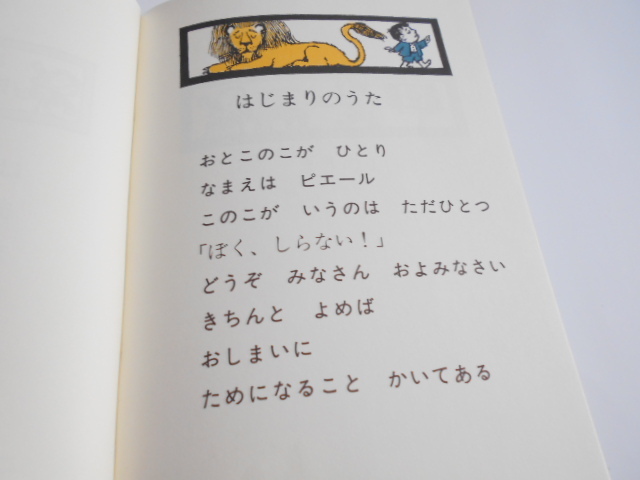 はじまりのうた
おとこのこが　ひとり
なまえは　ピエール
このこが　いうのは　ただひとつ
「ぼく、しらない！」
どうぞ　みなさん　およみなさい
きちんと　よめば
おしまいに
ためになること　かいてある